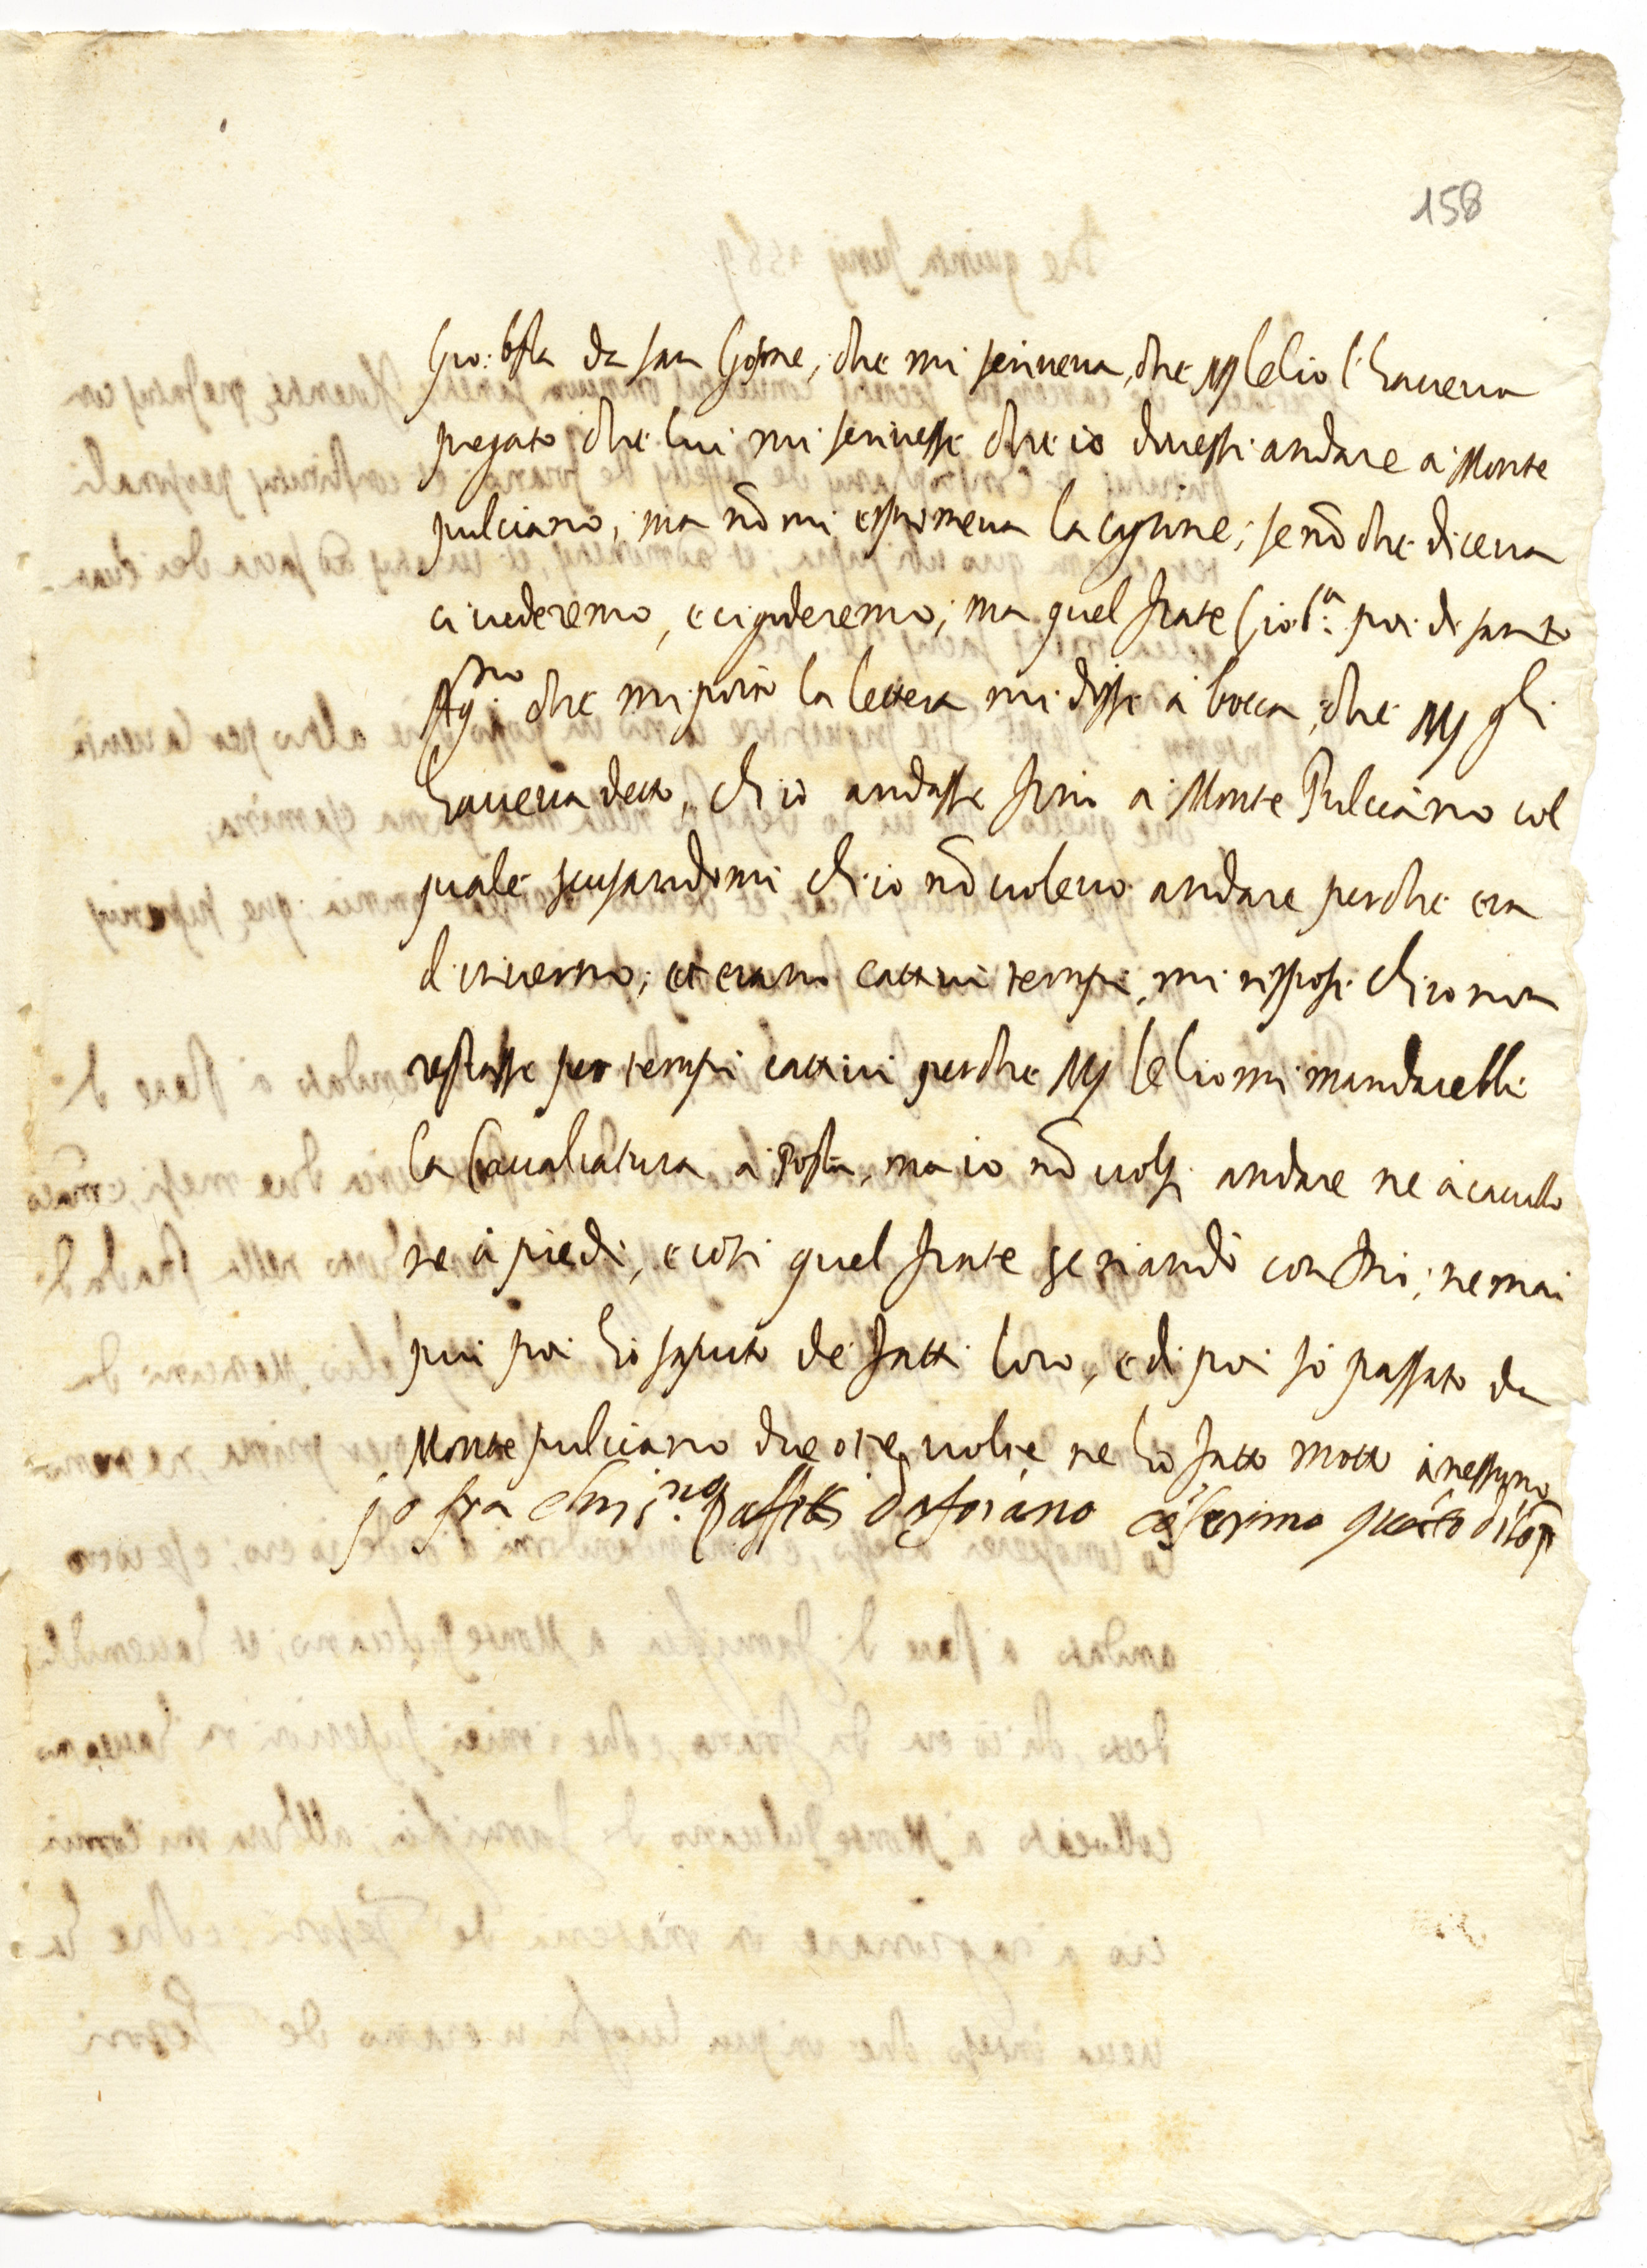 158
Gio: bsta da san Gosme, che mi scriveva, che Mẜ Lelio l'haveva
pregato che lui mi scrivesse che io dovessi andare a Monte
pulciano, ma nō mi esprimeva la cagione, se nō che diceva
ci vederemo, e ci goderemo, ma quel frate Gio: b.ª poi di santo
Ag.no che mi portò la lettera mi disse a bocca, che Mẜ gli
haveva detto, ch'io andasse fino a Monte Pulciano col
quale scusandomi ch'io nō volevo andare perche era
d'inverno, et erano cattivi tempi, mi rispose ch'io non
restasse per tempi cattivi perche Mẜ Lelio mi mandarebbe
la Cavalcatura a posta, ma io nō volsi andare ne a cavallo
ne a piedi, e così quel frate se n'andò con Dio, ne mai
piu poi hò saputo de fatti loro, e di poi sò passato da
Monte pulciano due o tre volte ne hò fatto motto a nessuno
io fra da foiano cōfermo quāto di sop.ª